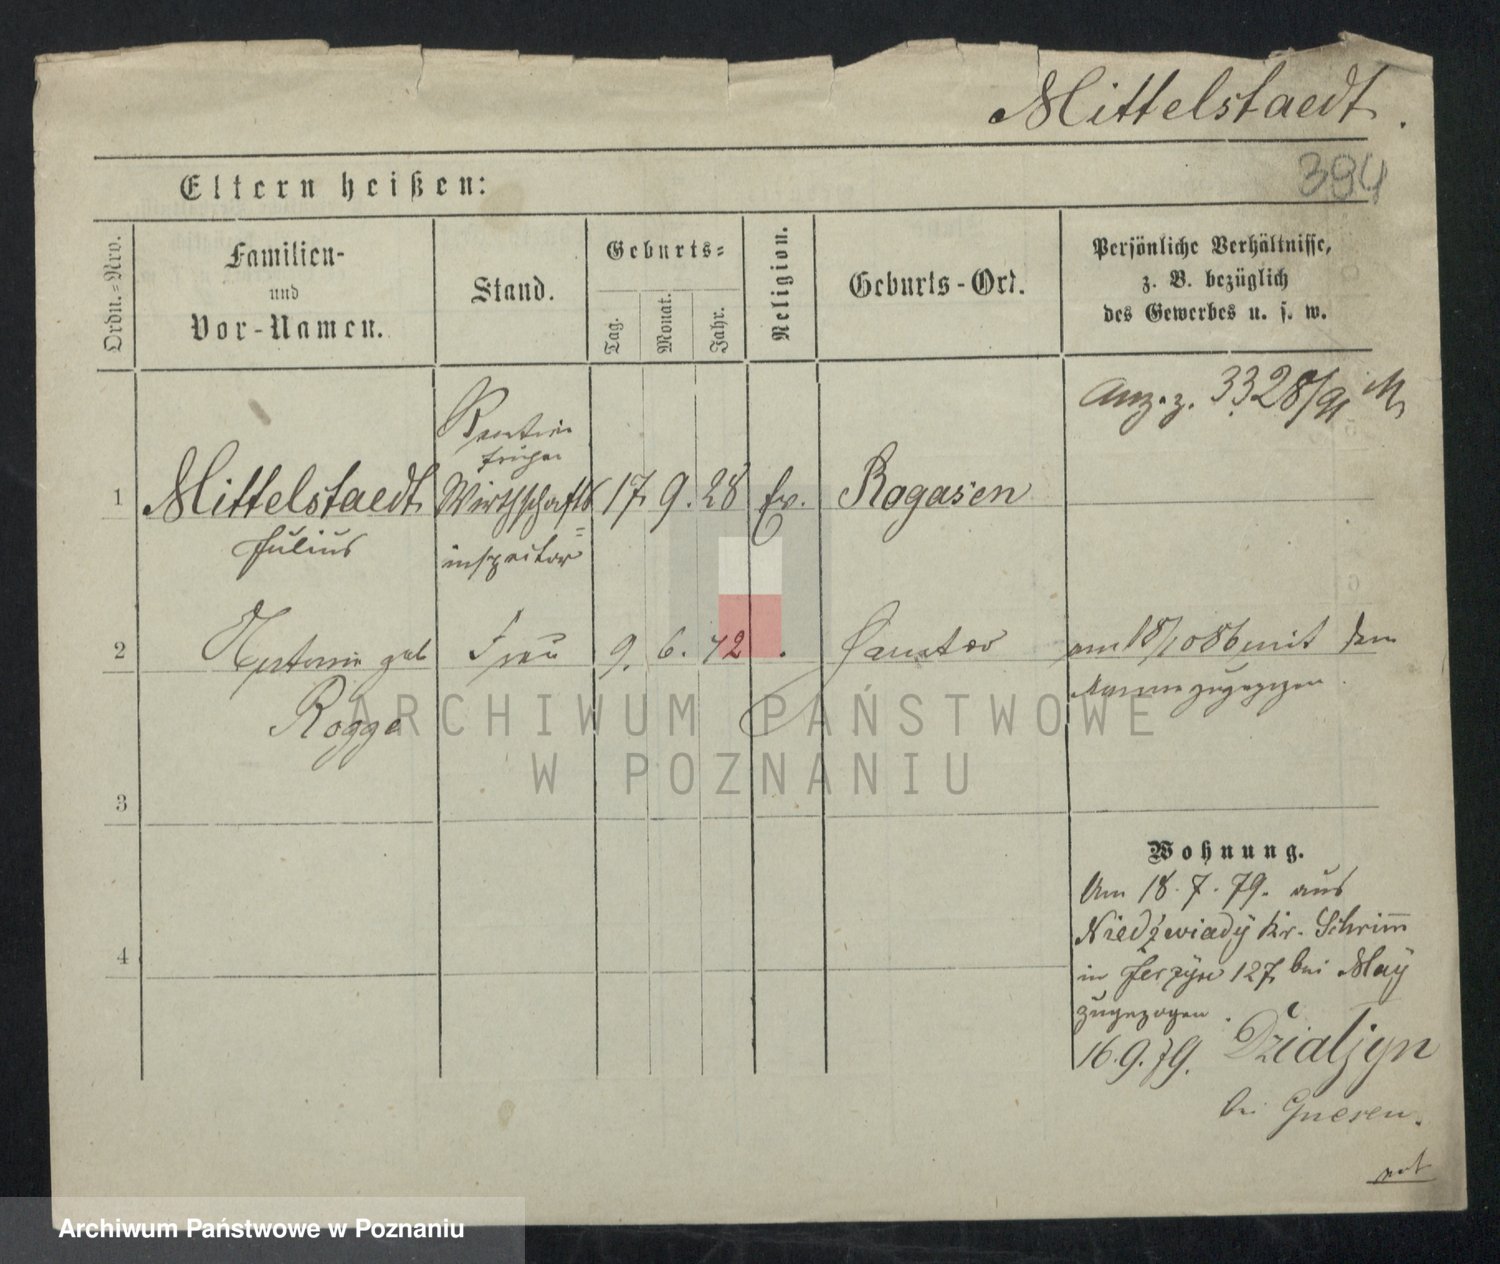 Mittelstaedt.
384
Eltern heißen:
Ordn.=Nro.
Familien-
und
Vor-Namen.
Stand.
Geburts=
Tag.
Monat.
Jahr.
Religion.
Geburts-Ort.
Persönliche Verhältnisse,
z. B. bezüglich
des Gewerbes u. s. w.
Anz. z. 3328/91
1 Mittelstaedt Wirthschafts 17. 9. 28 Ev. Rogasen
Julius
=
inspector
2 geb Frau 9. 6. 42 .
Rogge
am 18/10 86 mit dem
Manne zugezogen.
3
4
Wohnung.
Am 18. 7. 79. aus
Niedźwiady Kr. Schrimm
in Jerzyce 127, bei May
zugezogen.
16. 9. 79.
bei Gnesen.
ARCHIWUM PAŃSTWOWE
W POZNANIU
Archiwum Państwowe w Poznaniu